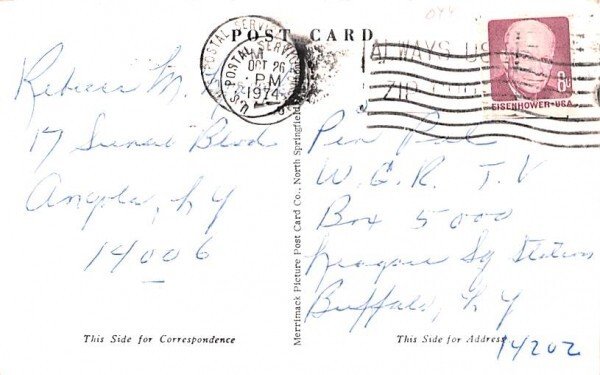 POST CARD
U.S. POSTAL SERVICE
PM
OCT 26
1974
ALWAYS USE
ZIP CODE
8c
EISENHOWER·USA
Rebecca M.
17 Sunset Blvd
Angola, NY
14006
Merrimack Picture Post Card Co., North Springfield
Pen Pal
W.G.R. T.V
Box 5000
Niagara Sq Station
Buffalo, NY
14202
This Side for Correspondence
This Side for Address